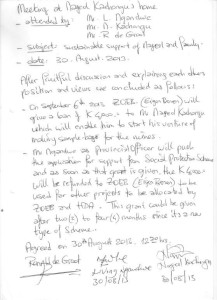 Meeting at Nagord Kachongu's home
- attended by: Mr L. Ngandwe
Mr N. Kachongu
Mr R de Graaf
- subject: sustainable support of Nagord and Family.
- date: 30 August 2013.
After fruitful discussion and explaining each others
position and views we concluded as follows:
- On September 6th 2013 ZOEB (Ergon Rosen) will
give a loan of K 6000 to Mr Nagord Kachongu
which will enable him to start his venture of
making sample bags for the mines.
- Mr Ngandwe as Provincial Officer will push
the application for support from Social Protection Scheme
and as soon as that grant is given, the K 6000
will be refunded to ZOEB (Ergon Rosen) to be
used for other projects to be allocated by
ZOEB and . This grant could be given
after two(2) to four(4) months since it's a new
type of Scheme.
Agreed on 30th August 2013, 12.20 hrs.
Ronald de Graaf
Living Ngandwe
30/08/13
Nagord Kachongu
30/08/13